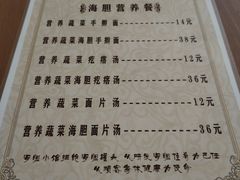 海胆营养餐
营养蔬菜手擀面 14元
营养蔬菜海胆手擀面 38元
营养蔬菜疙瘩汤 12元
营养蔬菜海胆疙瘩汤 36元
营养蔬菜面片汤 12元
营养蔬菜海胆面片汤 36元